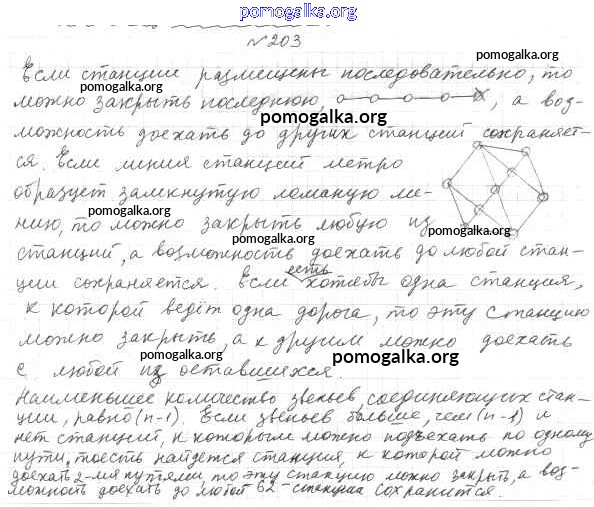 pomogalka.org
№ 203
pomogalka.org
Если станции размещены последовательно, то
pomogalka.org
можно закрыть последнюю, а воз-
pomogalka.org
можность доехать до других станций сохраняет-
ся. Если линия станций метро
pomogalka.org
образует замкнутую ломаную ли-
pomogalka.org
нию, то можно закрыть любую из
pomogalka.org
pomogalka.org
станций, а возможность доехать до любой стан-
ции сохраняется. Если есть хотябы одна станция,
к которой ведёт одна дорога, то эту станцию
можно закрыть, а к другим можно доехать
pomogalka.org
pomogalka.org
с любой из оставшихся.
Наименьшее количество звеньев, соединяющих стан-
ции, равно (n-1). Если звеньев больше, чем (n-1) и
нет станций, к которым можно подъехать по одному
пути, тоесть найдется станция, к которой можно
доехать 2-мя путями, то эту станцию можно закрыть, а воз-
можность доехать до любой 62-станции сохранится.